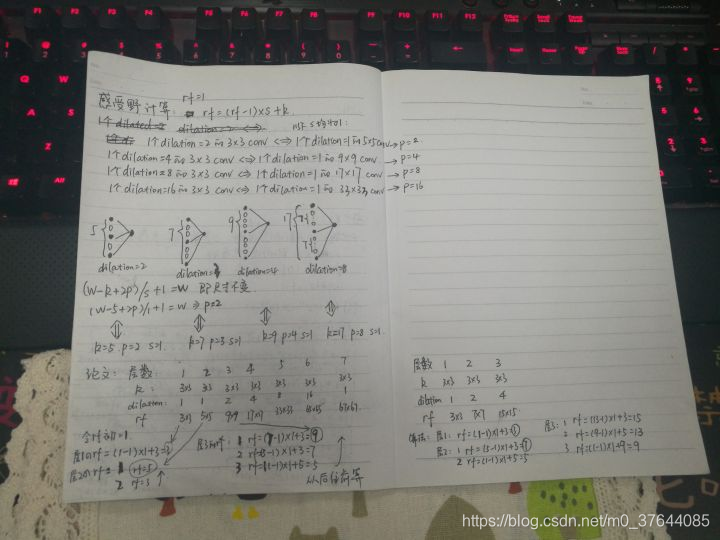 rf=1
感受野计算: rf=(rf-1)×s+k
1个dilation=2的3×3 conv <=> 1个dilation=1的5×5 conv → p=2
1个dilation=4的3×3 conv <=> 1个dilation=1的9×9 conv → p=4
1个dilation=8的3×3 conv <=> 1个dilation=1的17×17 conv → p=8
1个dilation=16的3×3 conv <=> 1个dilation=1的33×33 conv → p=16
5 7 9 17
dilation=2 dilation=3 dilation=4 dilation=8
(W-k+2p)/s+1=W 即尺寸不变
(W-5+2p)/1+1=W => p=2
k=5 p=2 s=1 k=7 p=3 s=1 k=9 p=4 s=1 k=17 p=8 s=1
论文: 层数: 1 2 3 4 5 6 7
k: 3×3 3×3 3×3 3×3 3×3 3×3 3×3
dilation: 1 1 2 4 8 16 1
rf 3×3 5×5 9×9 17×17 33×33 65×65 67×67
令rf初=1
层1的rf=(1-1)×1+3=3
层2的rf= 1 rf=5
2 rf=3
层3的rf: 1 rf=(7-1)×1+3=9
2 rf=(5-1)×1+3=7
3 rf=(1-1)×1+5=5
从后往前算
层数 1 2 3
k 3×3 3×3 3×3
dilation 1 2 4
rf 3×3 7×7 15×15
层1: rf=(1-1)×1+3=3
层2: 1 rf=(5-1)×1+3=7
2 rf=(1-1)×1+5=5
层3: 1 rf=(13-1)×1+3=15
2 rf=(9-1)×1+5=13
3 rf=(1-1)×1+9=9
https://blog.csdn.net/m0_37644085